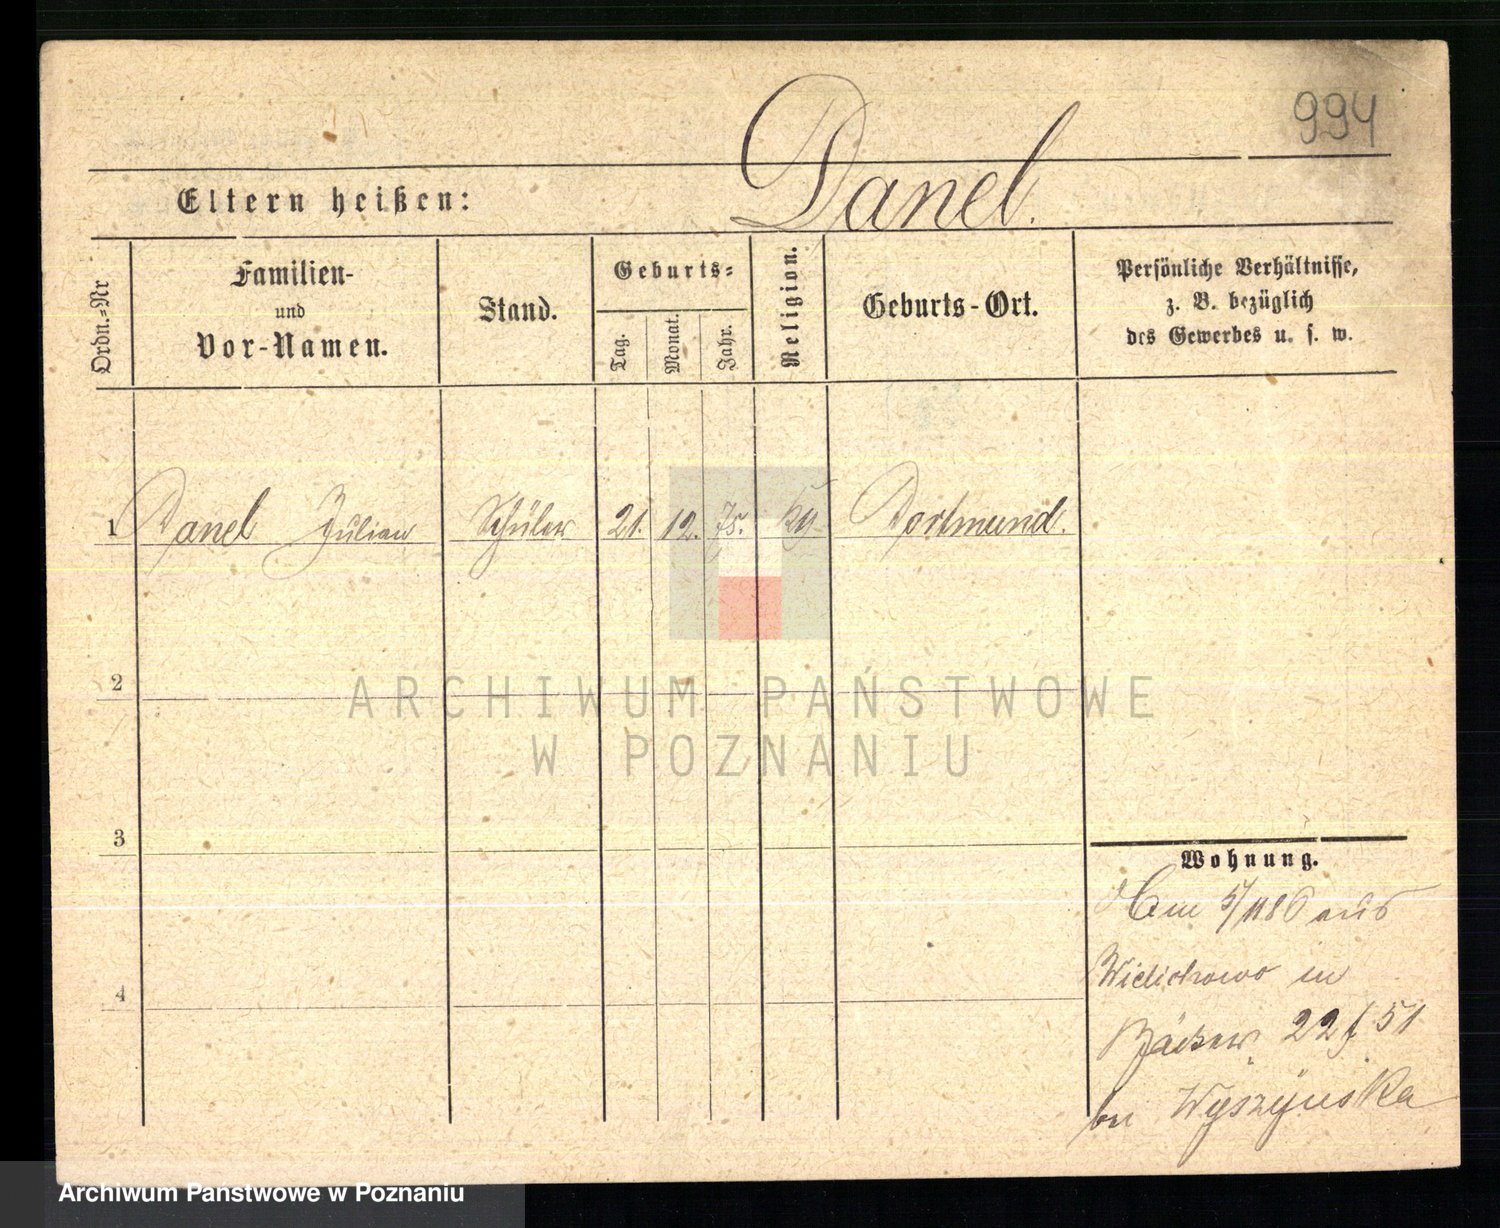 994
Danel.
Eltern heißen:
Ordn.-Nr
Familien-
und
Vor-Namen.
Stand.
Geburts-
Tag.
Monat.
Jahr.
Religion.
Geburts-Ort.
Persönliche Verhältnisse,
z. B. bezüglich
des Gewerbes u. s. w.
1 Danel Julian Schüler 21. 12. 75. Dortmund.
2
3
4
Wohnung.
aus
Wielichowo in
Bäcker 22 / 51
bei Wyszynska
ARCHIWUM PAŃSTWOWE
W POZNANIU
Archiwum Państwowe w Poznaniu